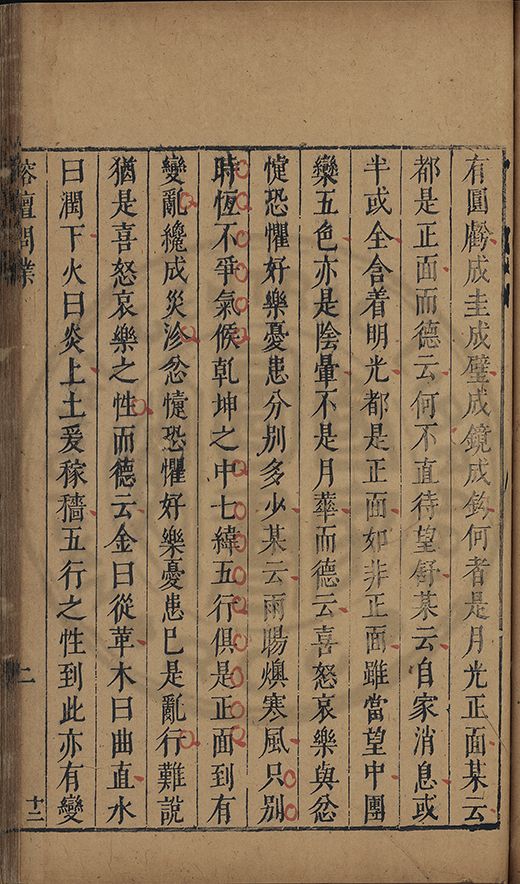 有圓虧成圭成璧成鏡成鉤何者是月光正面某云
都是正面而德云何不直待望舒某云自家消息或
半或全含着明光都是正面如非正面雖當望中團
欒五色亦是陰暈不是月華而德云喜怒哀樂與忿
懥恐懼好樂憂患分別多少某云雨暘燠寒風只別
時恆不爭氣候乾坤之中七緯五行俱是正面到有
變亂纔成災沴忿懥恐懼好樂憂患已是亂行難說
猶是喜怒哀樂之性而德云金曰從革木曰曲直水
曰潤下火曰炎上土爰稼穡五行之性到此亦有變
榕壇問業
二
十二